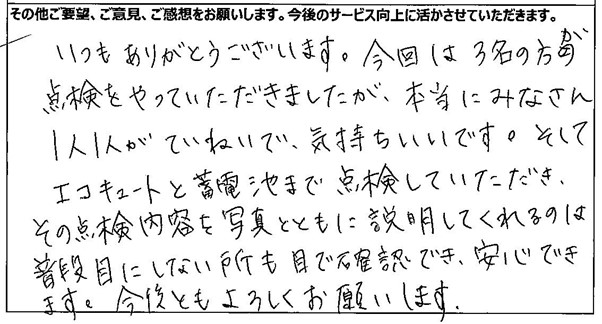 その他ご要望、ご意見、ご感想をお願いします。今後のサービス向上に活かさせていただきます。
いつもありがとうございます。今回は3名の方が
点検をやっていただきましたが、本当にみなさん
1人1人がていねいで、気持ちいいです。そして
エコキュートと蓄電池まで点検していただき、
その点検内容を写真とともに説明してくれるのは
普段目にしない所も目で確認でき、安心でき
ます。今後ともよろしくお願いします。